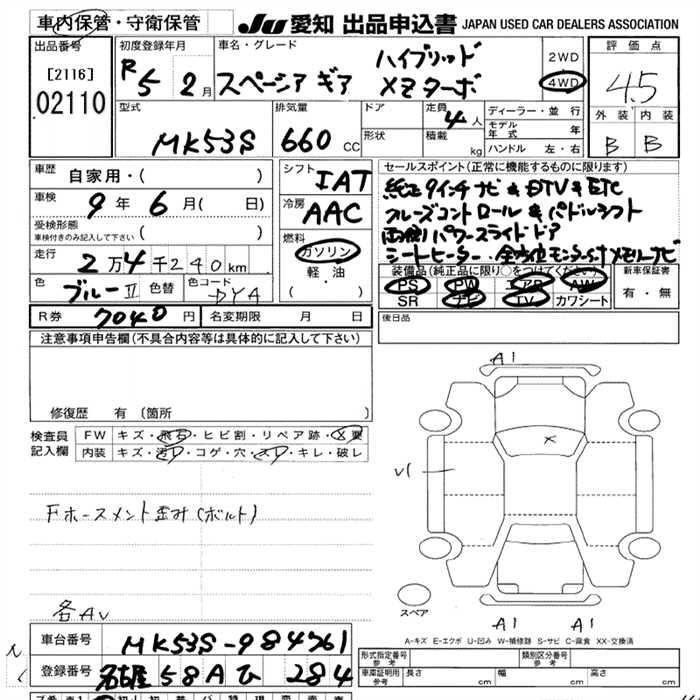 車内保管・守衛保管
JU 愛知 出品申込書 JAPAN USED CAR DEALERS ASSOCIATION
出品番号
[2116]
02110
初度登録年月
R5 2月
車名・グレード
スペーシア ギア ハイブリッド XZターボ
2WD
4WD
評価点
4.5
外装 内装
B B
型式
MK53S
排気量
660 CC
ドア
形状
定員 4人
積載 kg
ディーラー・並行
モデル年式 年
ハンドル 左・右
車歴
自家用・( )
車検
9年 6月( 日)
受検形態
車検付きのみ記入して下さい ( )
走行
2万4千240km
色
ブルーⅡ
色替
色コード
DYA
シフト
IAT
冷房
AAC
燃料
ガソリン
軽油
( ・ )
R券 7040円
名変期限 月 日
セールスポイント(正常に機能するものに限ります)
純正9インチナビ & DTV & ETC
クルーズコントロール & パドルシフト
両側パワースライドドア
シートヒーター・全方位モニター付メモリナビ
装備品(純正品に限り○をつけてください)
PS PW エアB AW
SR ナビ TV カワシート
新車保証書
有・無
後日品
注意事項申告欄(不具合内容等は具体的に記入して下さい)
修復歴 有 〔箇所 〕
検査員記入欄
FW キズ・飛石・ヒビ割・リペア跡・X要
内装 キズ・汚レ・コゲ・穴・スレ・キレ・破レ
Fホースメント歪み(ボルト)
各AU
A1
X
U1
スペア
A1 A1
A-キズ E-エクボ U-凹み W-補修跡 S-サビ C-腐食 XX-交換済
車台番号 MK53S-984761
登録番号 名古屋 58A ひ 284
形式指定番号 参考
類別区分番号 参考
車庫証明用 参考
長さ cm
幅 cm
高さ cm